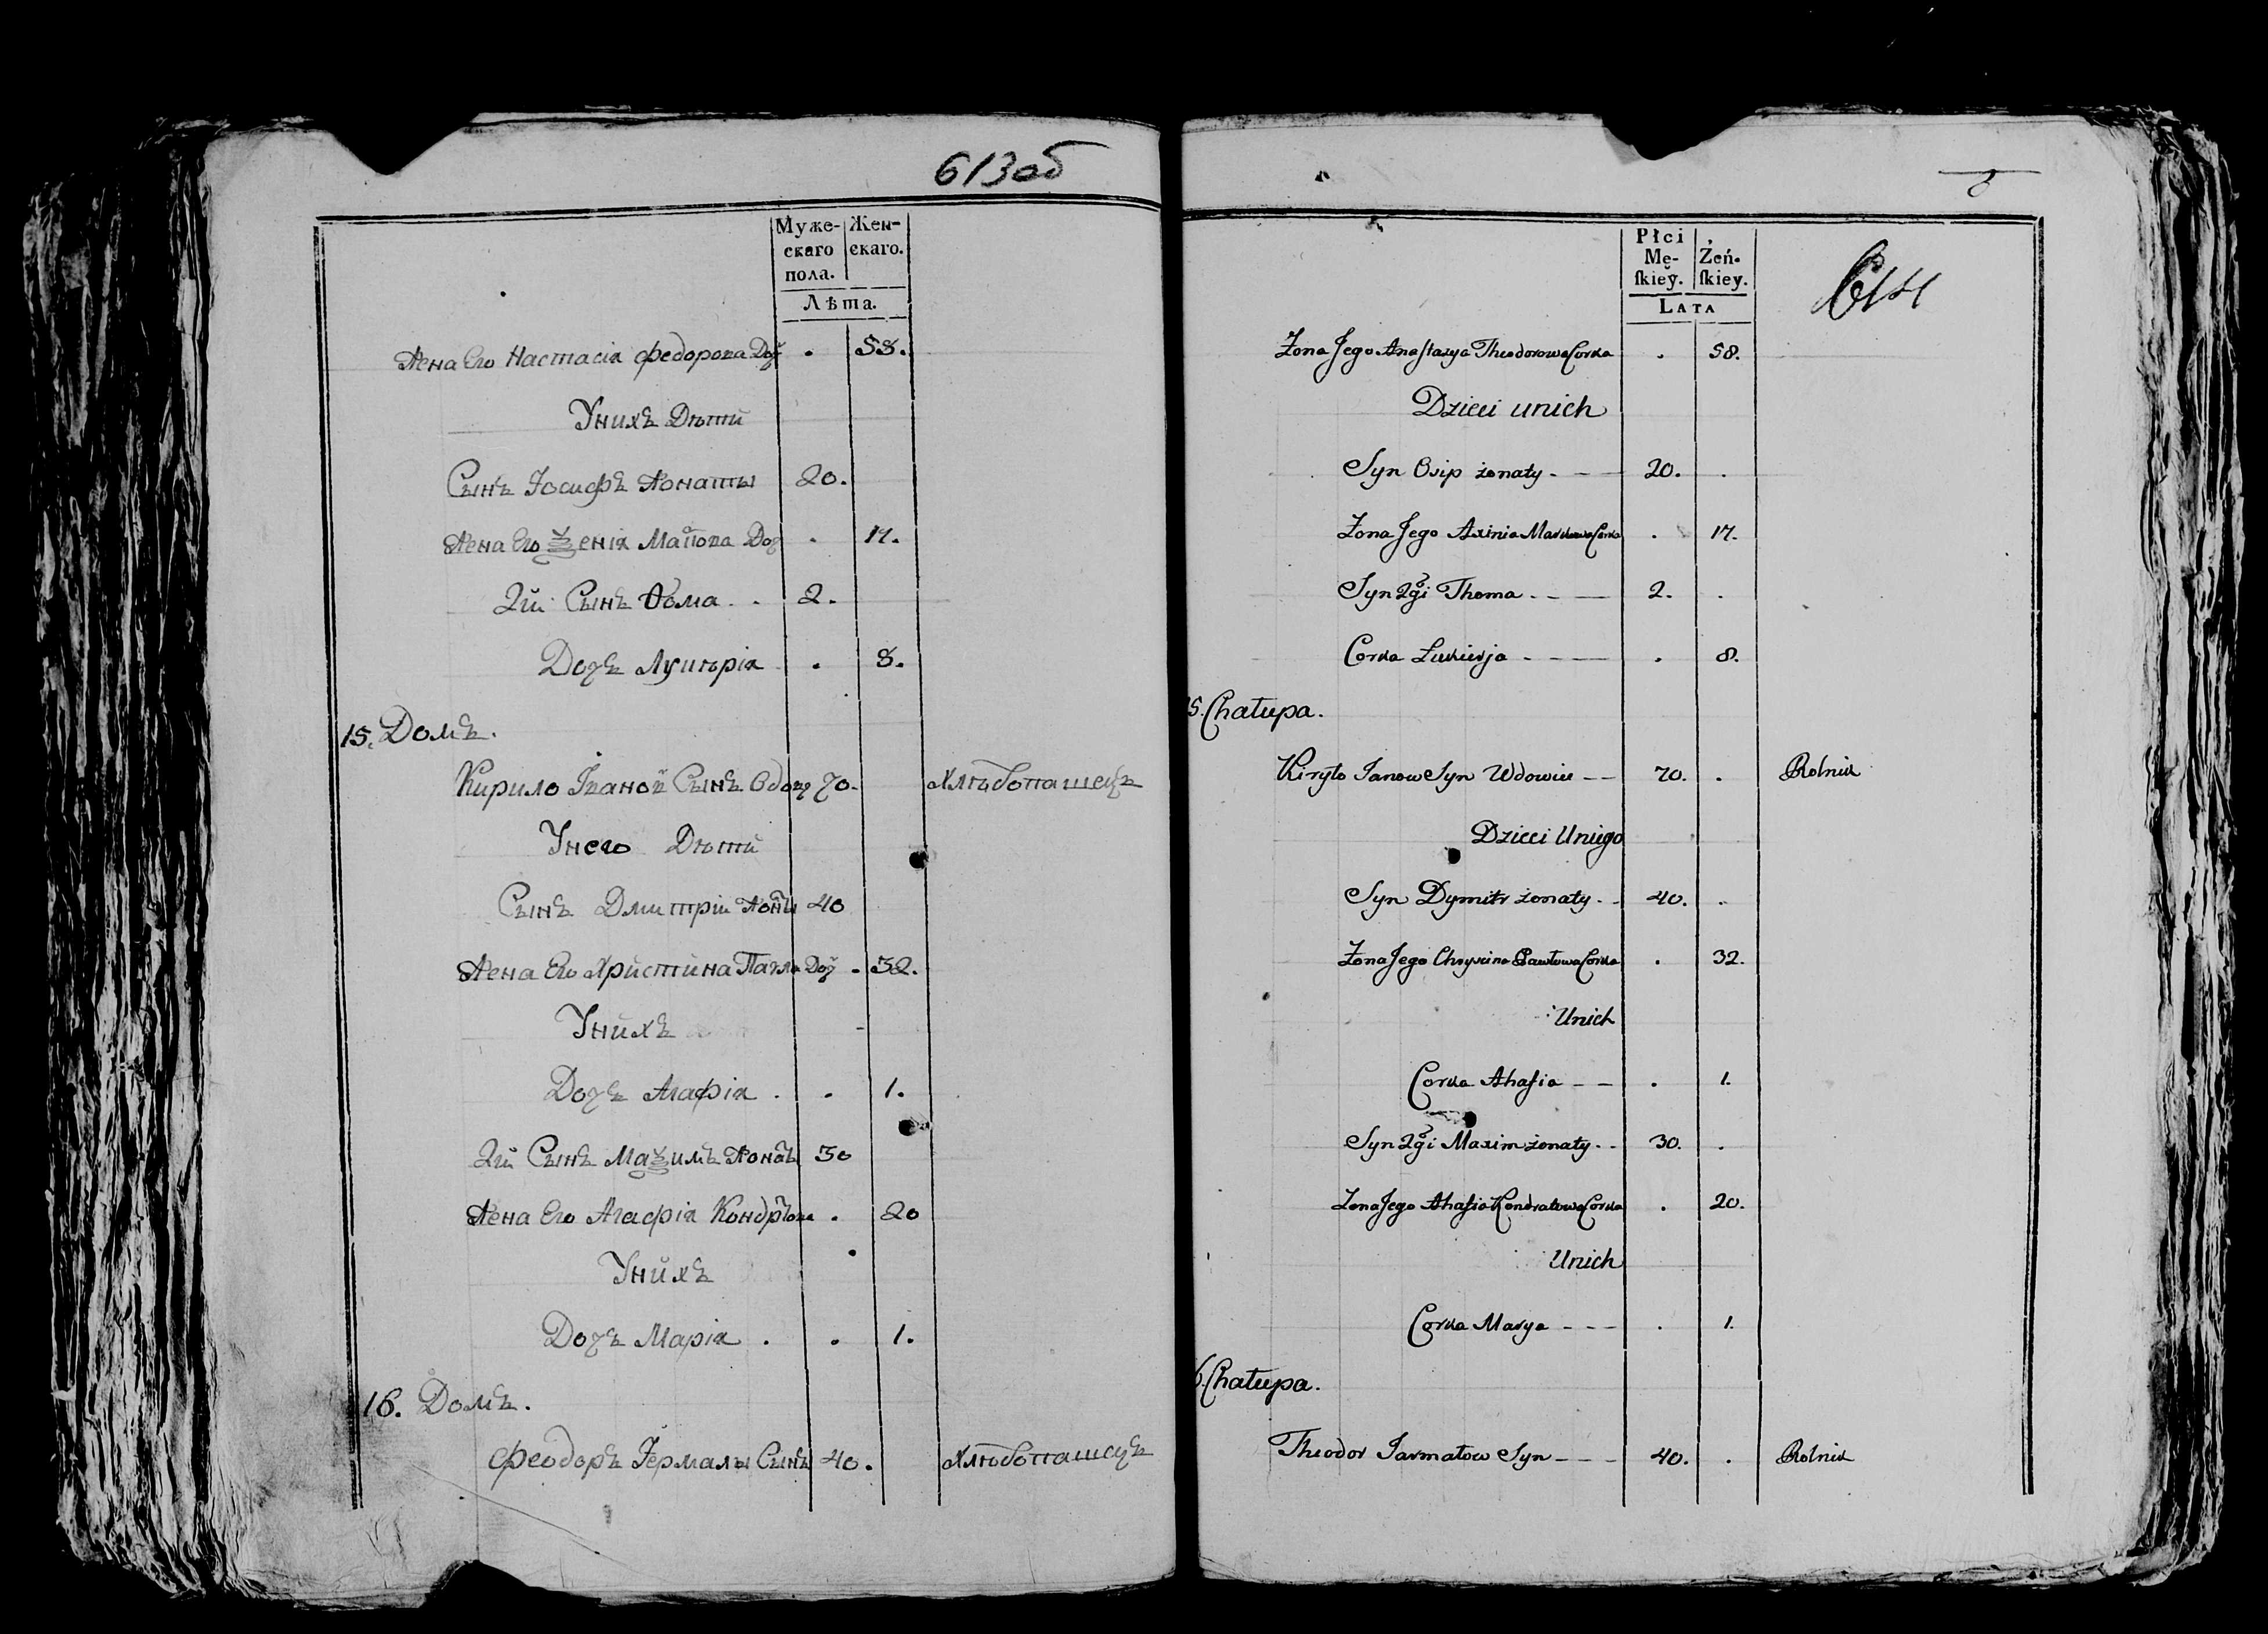 613об
Муже- Жен-
скаго скаго.
пола.
Лѣта.
Жена Его Настасія Федорова Доч . 58.
Унихъ Дѣти
Сынъ Іосифъ Жонаты 20.
Жена Его Ѯенія Маркова Доч . 17.
2й Сынъ Ѳома . . 2.
Дочъ Лукѣрія . 8.
15. Домъ.
Кирило Іванов Сынъ Вдовц 70. Хлѣбопашецъ
Унего Дѣти
Сынъ Дмитрій Жонты 40
Жена Его Христина Павла Доч . 32.
Унихъ
Дочъ Агафія . . 1.
2й Сынъ Маѯимъ Жонатъ 30
Жена Его Агафія Кондратова . 20
Унихъ
Дочъ Марія . . 1.
16. Домъ.
Феодоръ Іермалы Сынъ 40. Хлѣбопашецъ
614
Płci
Mę- Żeń-
ſkiey. ſkiey.
LATA
Żona Jego Anaſtasya Theodorowa Corka . 58.
Dzieci unich
Syn Osip żonaty - — 20. .
Żona Jego Axinia Markowa Corka . 17.
Syn 2gi Thoma - - — 2. .
Corka Łukierja - - — . 8.
15. Chałupa.
Kiryło Janow Syn Wdowiec — 70. . Rolnik
Dzieci Uniego
Syn Dymitr żonaty - - 40. .
Żona Jego Chrystina Pawłowa Corka . 32.
Unich
Corka Ahafia - - . 1.
Syn 2gi Maxim żonaty - - 30. .
Żona Jego Ahafia Kondratowa Corka . 20.
Unich
Corka Marya - - - . 1.
6. Chałupa.
Theodor Jarmałow Syn - - - 40. . Rolnik